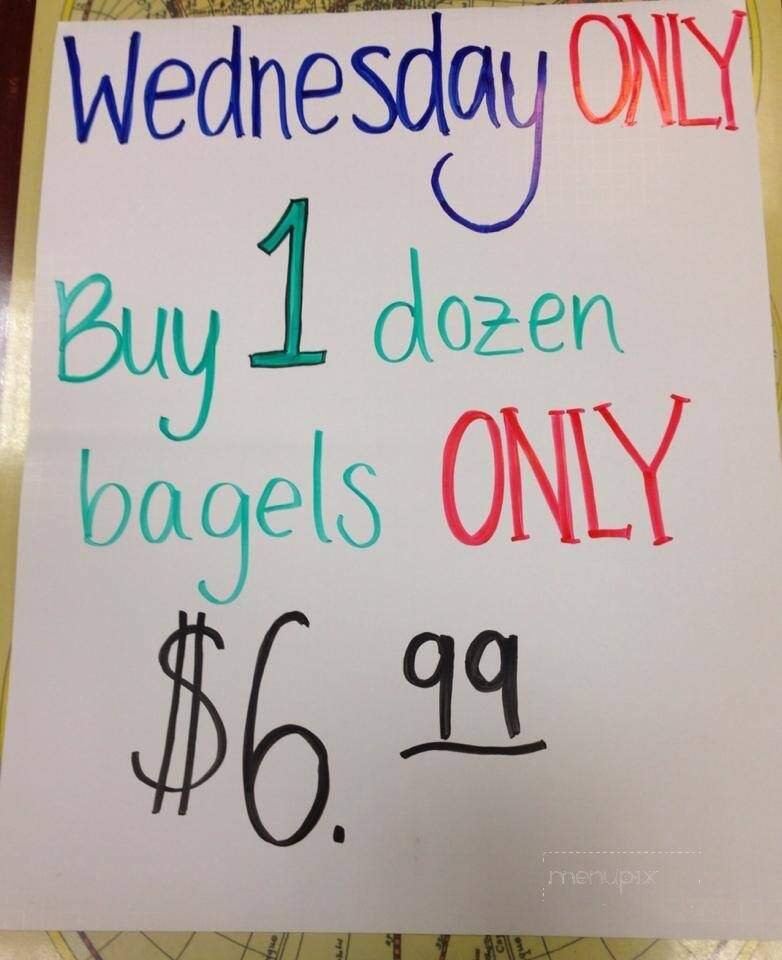 Wednesday ONLY
Buy 1 dozen
bagels ONLY
$6.99
menupix